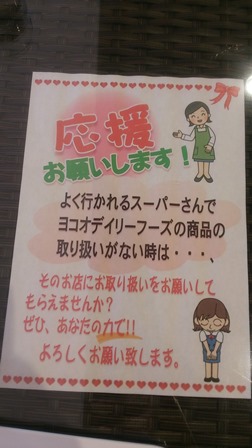 応援
お願いします!
よく行かれるスーパーさんで
ヨコオデイリーフーズの商品の
取り扱いがない時は・・・、
そのお店にお取り扱いをお願いして
もらえませんか?
ぜひ、あなたの力で!!
よろしくお願い致します。